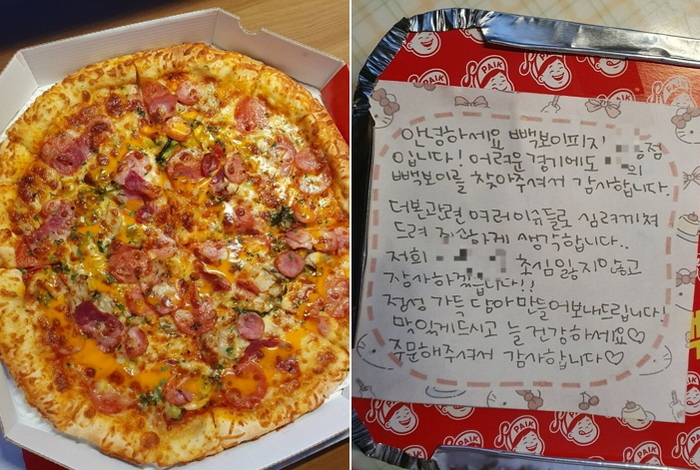 안녕하세요 빽보이피자 점
입니다! 어려운 경기에도 의
빽보이를 찾아주셔서 감사합니다.
더본관련 여러이슈들로 심려끼쳐
드려 죄산하게 생각합니다..
저희 초심 잃지않고
장사하겠습니다!!
정성 가득 담아 만들어보내드립니다!
맛있게드시고 늘 건강하세요♡
주문해주셔서 감사합니다♡
PAIK
PAIK
PAIK